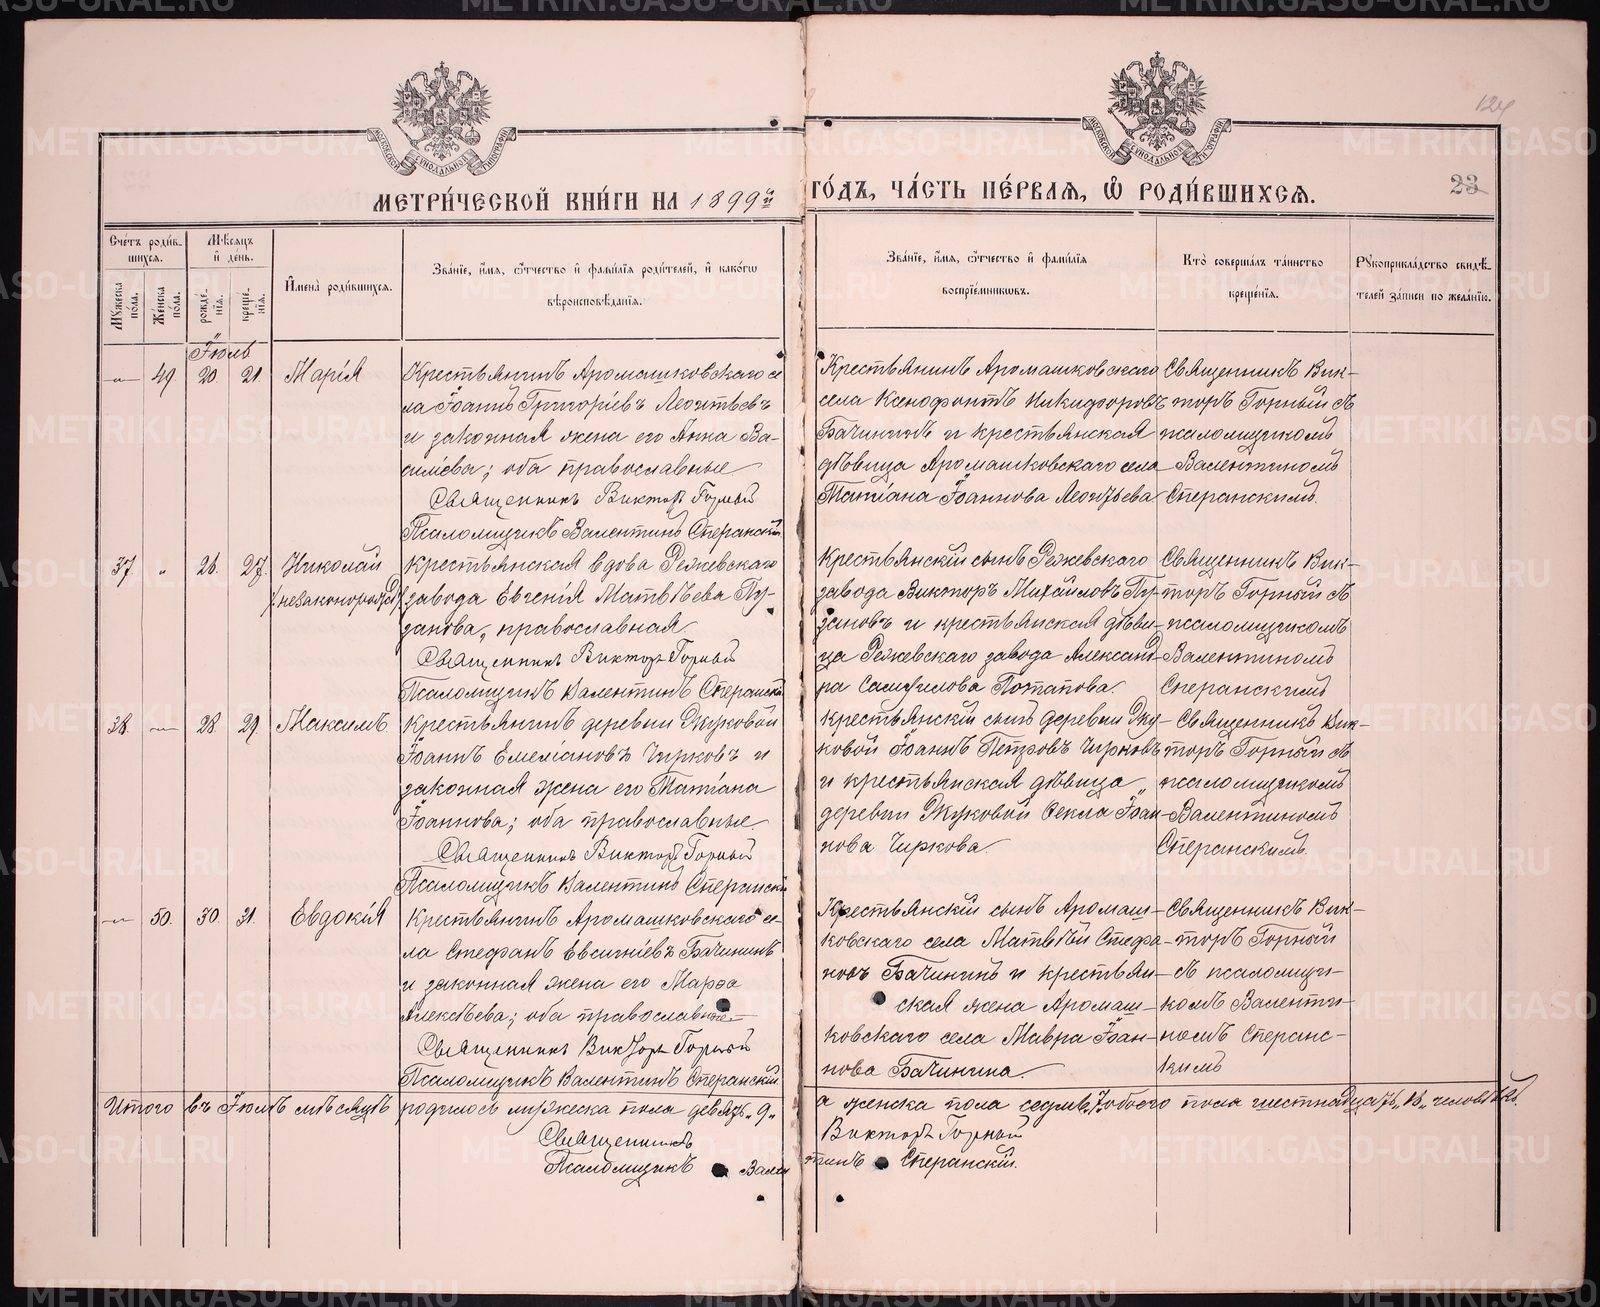 МЕТРИ́ЧЕСКОЙ КНИ́ГИ НА 1899й ГО́ДЪ, ЧА́СТЬ ПЕ́РВАЯ, Ѡ҆ РОДИ́ВШИХСЯ.
124
23
Сче́тъ роди́в-
шихся.
Му́жеска по́ла.
Же́нска по́ла.
Мѣ́сяцъ и҆ де́нь.
рожде́-нїя.
креще́-нїя.
И҆мена̀ роди́вшихся.
Зва́нїе, и҆́мя, ѻ҆́тчество и҆ фамѝлїя роди́телей, и҆ како́гѡ
вѣроисповѣ́данїя.
Зва́нїе, и҆́мя, ѻ҆́тчество и҆ фамѝлїя
воспрїе́мникѡвъ.
Кто̀ соверша́лъ та́инство
креще́нїя.
Рꙋкоприкла́дство свидѣ́-
телей за́писи по жела́нїю.
Іюль
— 49 20 21 Марія
Крестьянинъ Аромашковскаго се-
ла Іоаннъ Григоріевъ Леонтьевъ
и законная жена его Анна Ва-
силіева; оба православные
Священникъ Викторъ Горный
Псаломщикъ Валентинъ Сперанскій
Крестьянинъ Аромашковскаго
села Ксенофонтъ Никифоровъ
Бачининъ и крестьянская
дѣвица Аромашковскаго села
Татіана Іоаннова Леонтьева
Священникъ Вик-
торъ Горный съ
псаломщикомъ
Валентиномъ
Сперанскимъ.
37 „ 26. 27. Николай
(незаконорожд)
Крестьянская вдова Режевскаго
завода Евгенія Матвѣева Пу-
занова, православная.
Священникъ Викторъ Горный
Псаломщикъ Валентинъ Сперанскій
Крестьянскій сынъ Режевскаго
завода Викторъ Михайловъ Пу-
зановъ и крестьянская дѣви-
ца Режевскаго завода Александ-
ра Самуилова Потапова.
Священникъ Вик-
торъ Горный съ
псаломщикомъ
Валентиномъ
Сперанскимъ
38. — 28. 29. Максимъ
Крестьянинъ деревни Жуковой
Іоаннъ Емеліановъ Чирковъ и
законная жена его Татіана
Іоаннова; оба православные.
Священникъ Викторъ Горный
Псаломщикъ Валентинъ Сперанскій
Крестьянскій сынъ деревни Жу-
ковой Іоаннъ Петровъ Чирковъ
и крестьянская дѣвица
деревни Жуковой Ѳекла Іоан-
нова Чиркова.
Священникъ Вик-
торъ Горный съ
псаломщикомъ
Валентиномъ
Сперанскимъ.
— 50. 30. 31. Евдокія
Крестьянинъ Аромашковскаго се-
ла Стефанъ Евсигніевъ Бачининъ
и законная жена его Марѳа
Алексѣева; оба православные.
Священникъ Викторъ Горный
Псаломщикъ Валентинъ Сперанскій
Крестьянскій сынъ Аромаш-
ковскаго села Матвѣй Стефа-
новъ Бачининъ и крестьян-
ская жена Аромаш-
ковскаго села Мавра Іоан-
нова Бачинина.
Священникъ Вик-
торъ Горный
съ псаломщи-
комъ Валенти-
номъ Сперанс-
кимъ
Итого въ Іюлѣ мѣсяцѣ родилось мужеска пола девять „9„ а женска пола седмь, 7, обоего пола шестнадцать, 16„ человѣкъ.
Священникъ Викторъ Горный
Псаломщикъ Валентинъ Сперанскій.